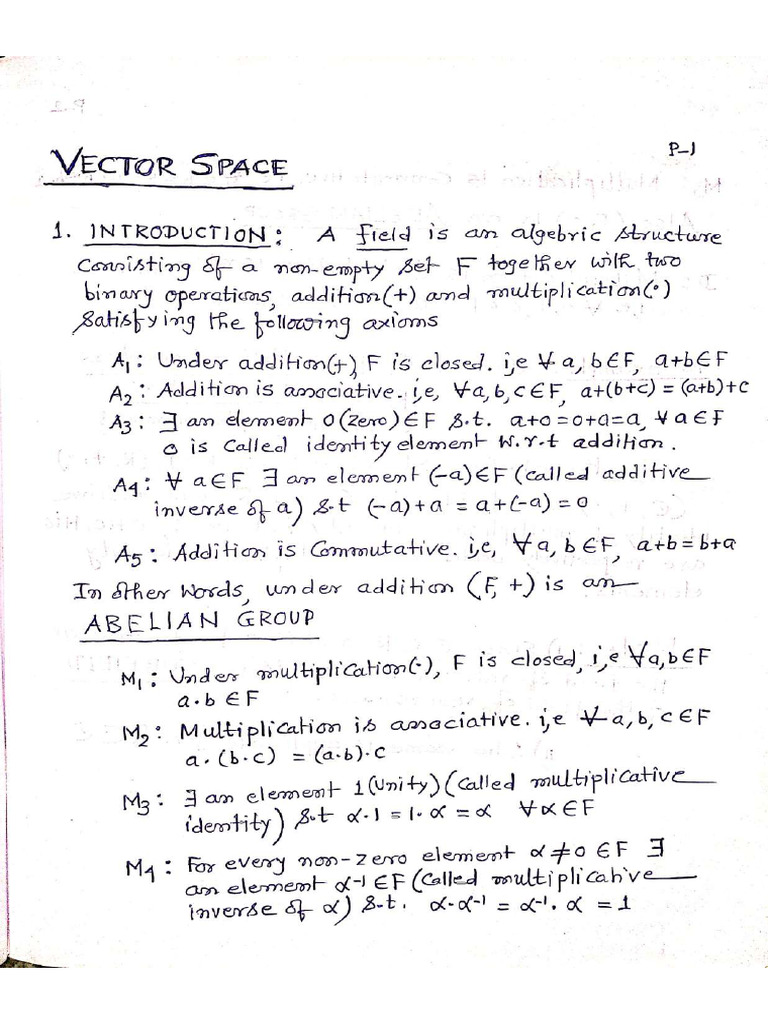 P-1
VECTOR SPACE
1. INTRODUCTION: A field is an algebric structure
Consisting of a non-empty set F together with two
binary operations, addition(+) and multiplication(·)
satisfying the following axioms
A₁: Under addition(+), F is closed. i,e ∀ a, b∈F, a+b∈F
A₂: Addition is associative. i,e, ∀a,b,c∈F, a+(b+c) = (a+b)+c
A₃: ∃ an element 0(zero)∈F s.t. a+0=0+a=a, ∀a∈F
0 is called identity element w.r.t addition.
A₄: ∀ a∈F ∃ an element (-a)∈F (called additive
inverse of a) s.t (-a)+a = a+(-a) = 0
A₅: Addition is Commutative. i,e, ∀a, b∈F, a+b=b+a
In other words, under addition (F, +) is an
ABELIAN GROUP
M₁: Under multiplication(·), F is closed, i,e ∀a,b∈F
a·b ∈F
M₂: Multiplication is associative. i,e ∀ a,b,c∈F
a·(b·c) = (a·b)·c
M₃: ∃ an element 1(Unity)(called multiplicative
identity) s.t α·1 = 1·α = α ∀α∈F
M₄: For every non-zero element α≠0 ∈F ∃
an element α⁻¹∈F (called multiplicative
inverse of α) s.t. α·α⁻¹ = α⁻¹·α = 1